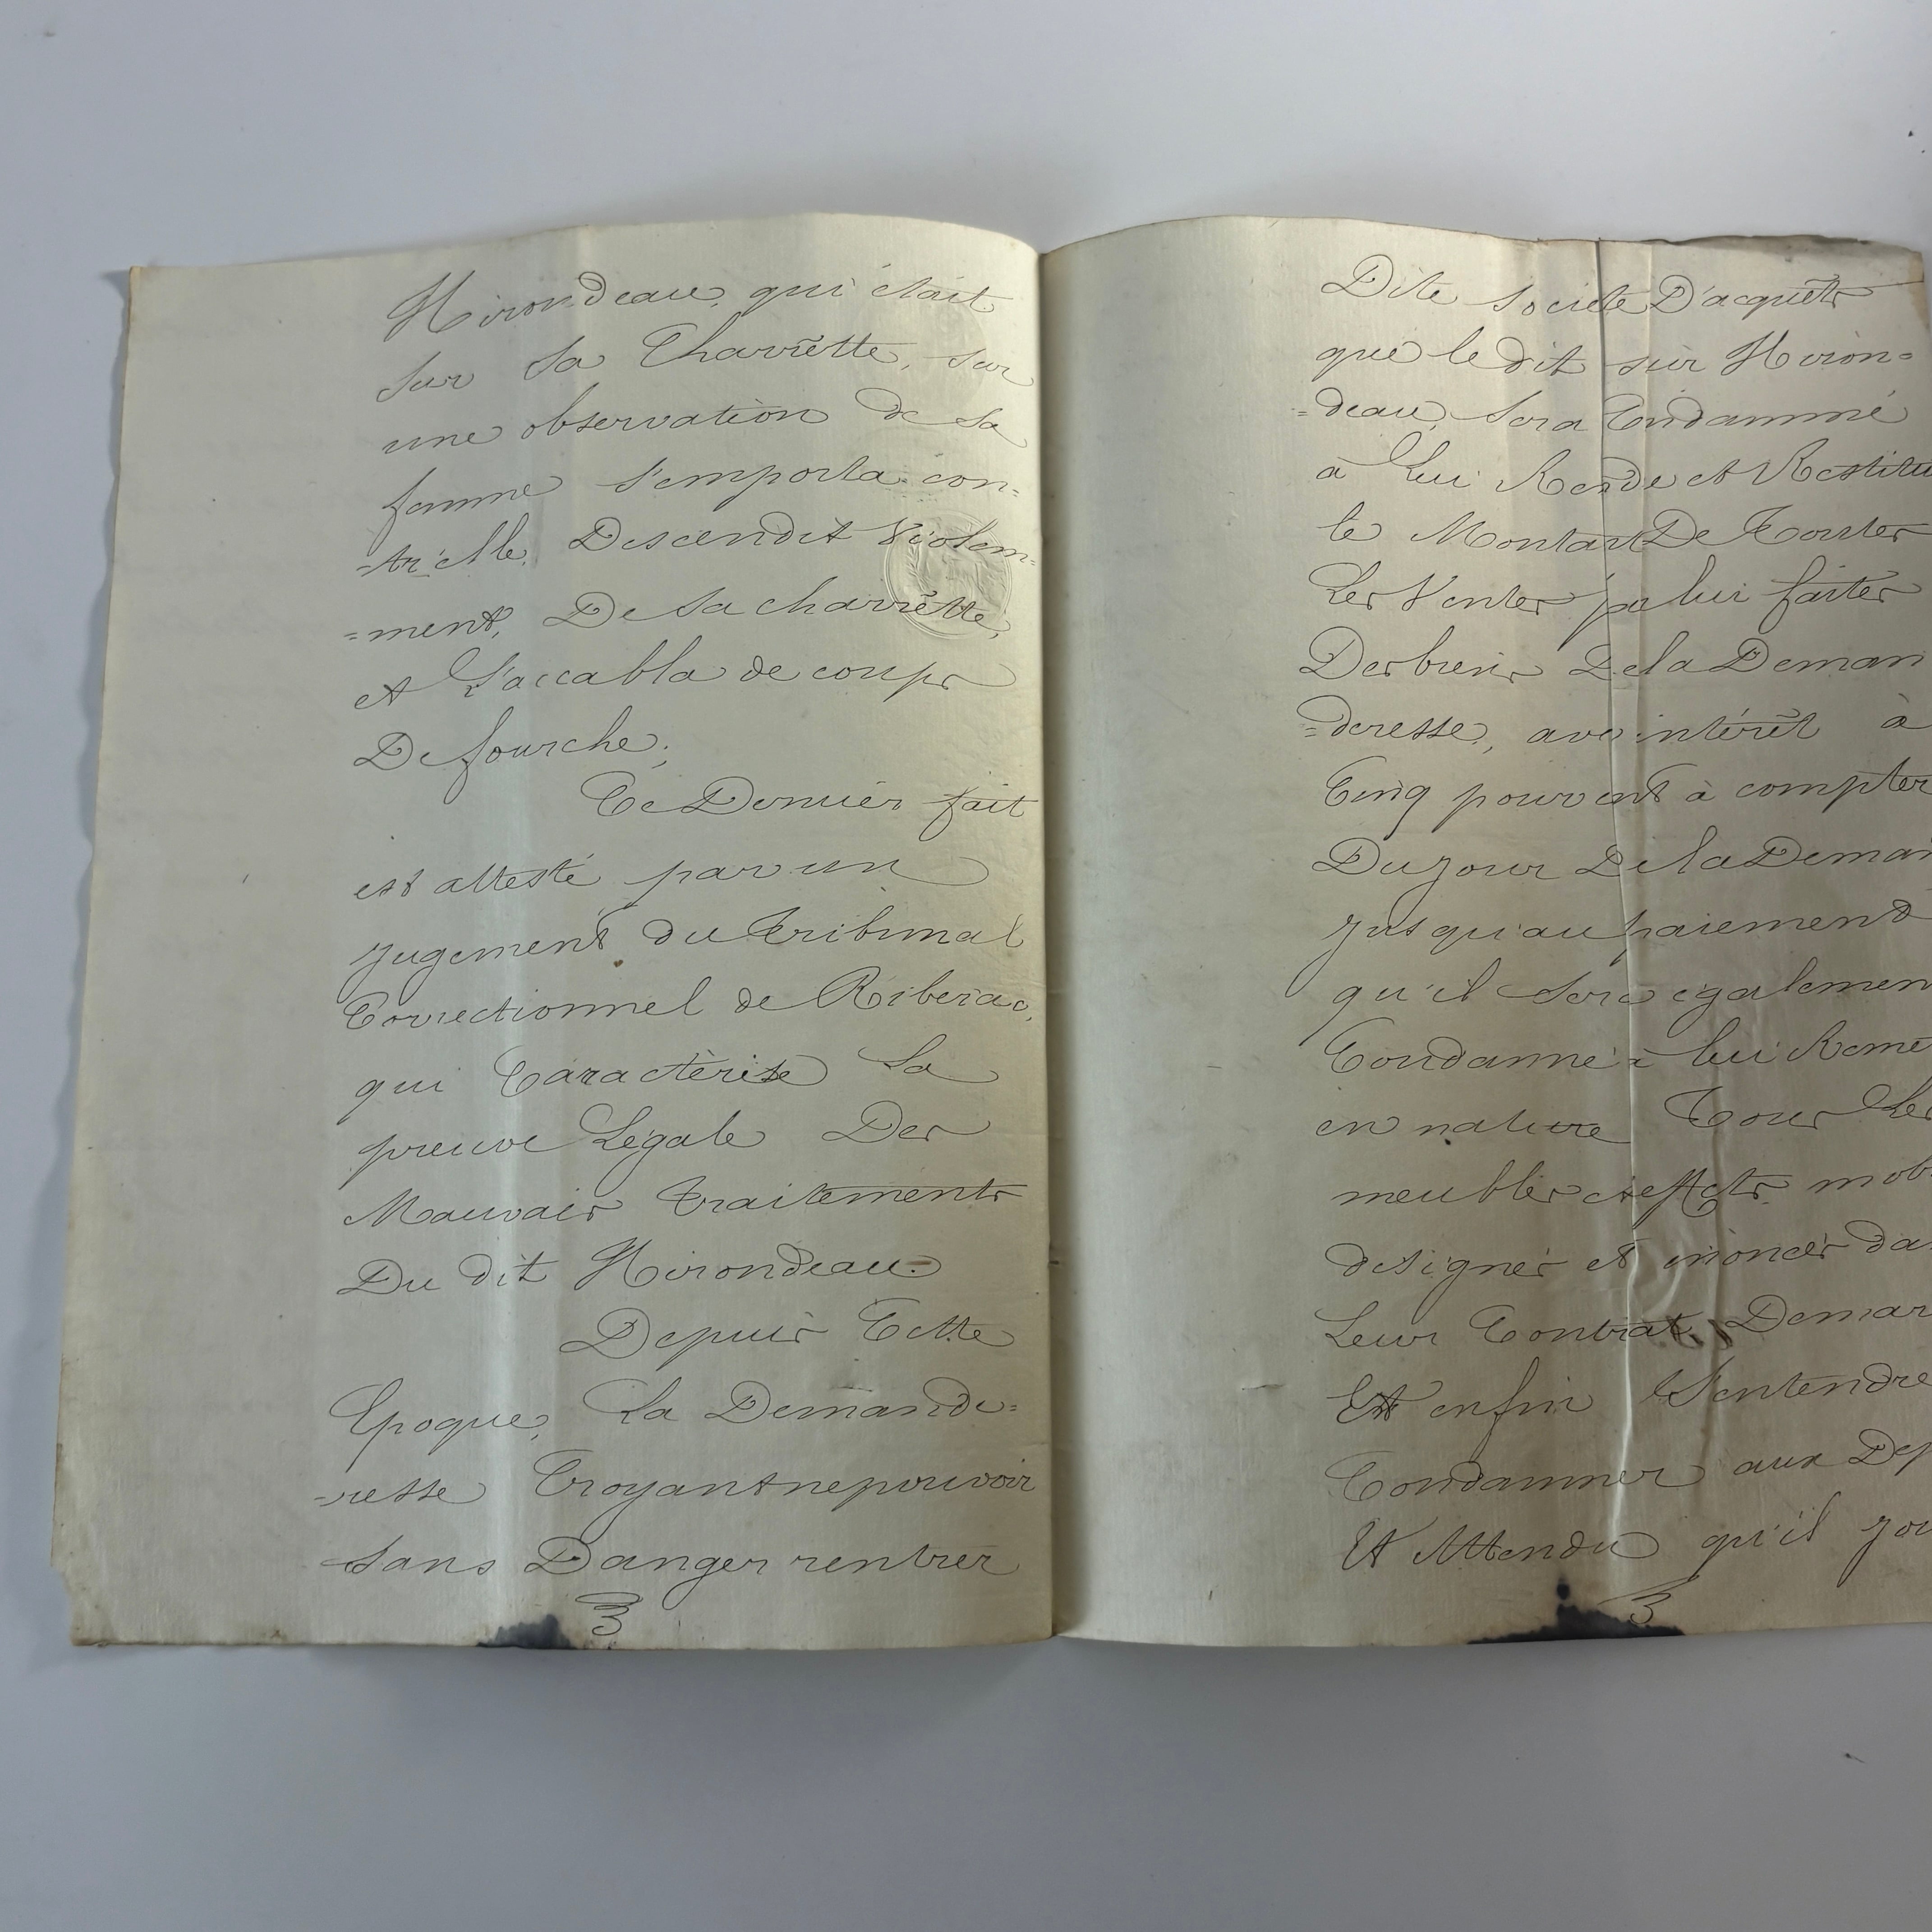 Hirondeau, qui était
sur sa Charrètte, sur
une observation de sa
femme s'emporta con=
=tr'elle, Descendit Violem=
=ment, De sa charrètte,
et L'accabla de coups
De fourche;
Ce Dernier fait
est attesté par un
jugement du tribunal
Correctionnel de Ribérac,
qui Caractèrise La
preuve Légale Des
Mauvais traitements
Du dit Hirondeau.
Depuis Cette
Epoque, La Demande=
=resse Croyant ne pouvoir
sans Danger rentrer
3
Dite societé D'acquêts
que le dit sieur Hiron=
=deau, sera Condamné
à Lui Rendre et Restitu
le Montant De Toutes
Les Ventes par lui faites
Des biens De la Deman
=deresse, avec intérêt à
Cinq pour cent à compter
Du jour De la Deman
jusqu'au paiement
qu'il sera également
Condamné à lui Reme
en nature Tous Les
meubles et effets mob
designés et énoncés da
Leur Contrat, Demar
Et enfin S'entendre
Condamner aux Dép
Et Attendu qu'il you
3